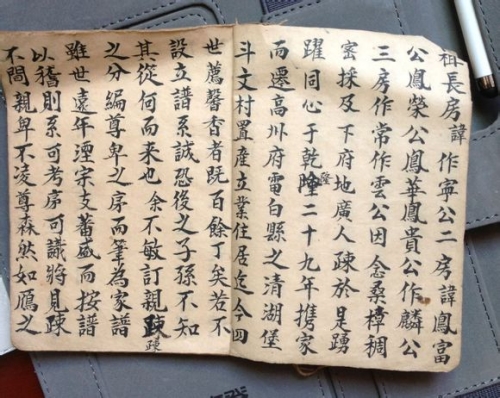 祖長房諱作寧公二房諱鳳富
公鳳榮公鳳華鳳貴公作麟公
三房作常作雲公因念桑樟稠
密採及下府地廣人疎於是踴
躍同心于乾隆二十九年携家
而遷高州府電白縣之清湖堡
斗文村置產立業住居迄今四
世薦馨香者既百餘丁矣若不
設立譜系誠恐後之子孫不知
其從何而來也余不敏訂親疎
之分編尊卑之序而筆為家譜
雖世遠年湮宗支蕃盛而按譜
以稽則系可考序可議將見踈
不間親卑不凌尊森然如鴈之